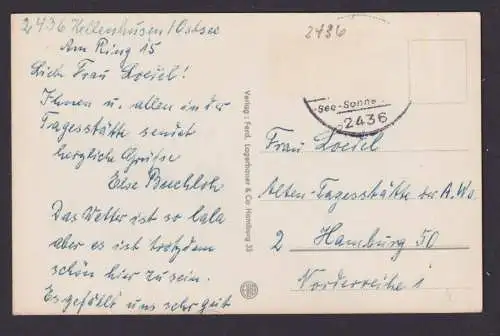 2436 Kellenhusen/Ostsee
Am Ring 15
Liebe Frau Loesel!
Ihnen u. allen in der
Tagesstätte sendet
herzliche Grüsse
Else
Das Wetter ist so lala
aber es ist trotzdem
schön hier zu sein.
Es gefällt uns sehr gut
Verlag: Ferd. Lagerbauer & Co Hamburg 33
2436
See-Sonne
2436
Frau Loesel
Alten-Tagesstätte der A.Wo.
2 Hamburg 50
Norderreihe 1